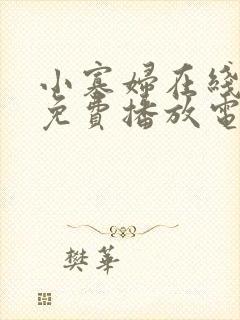 小寡婦在綫
免費播放電
樊華